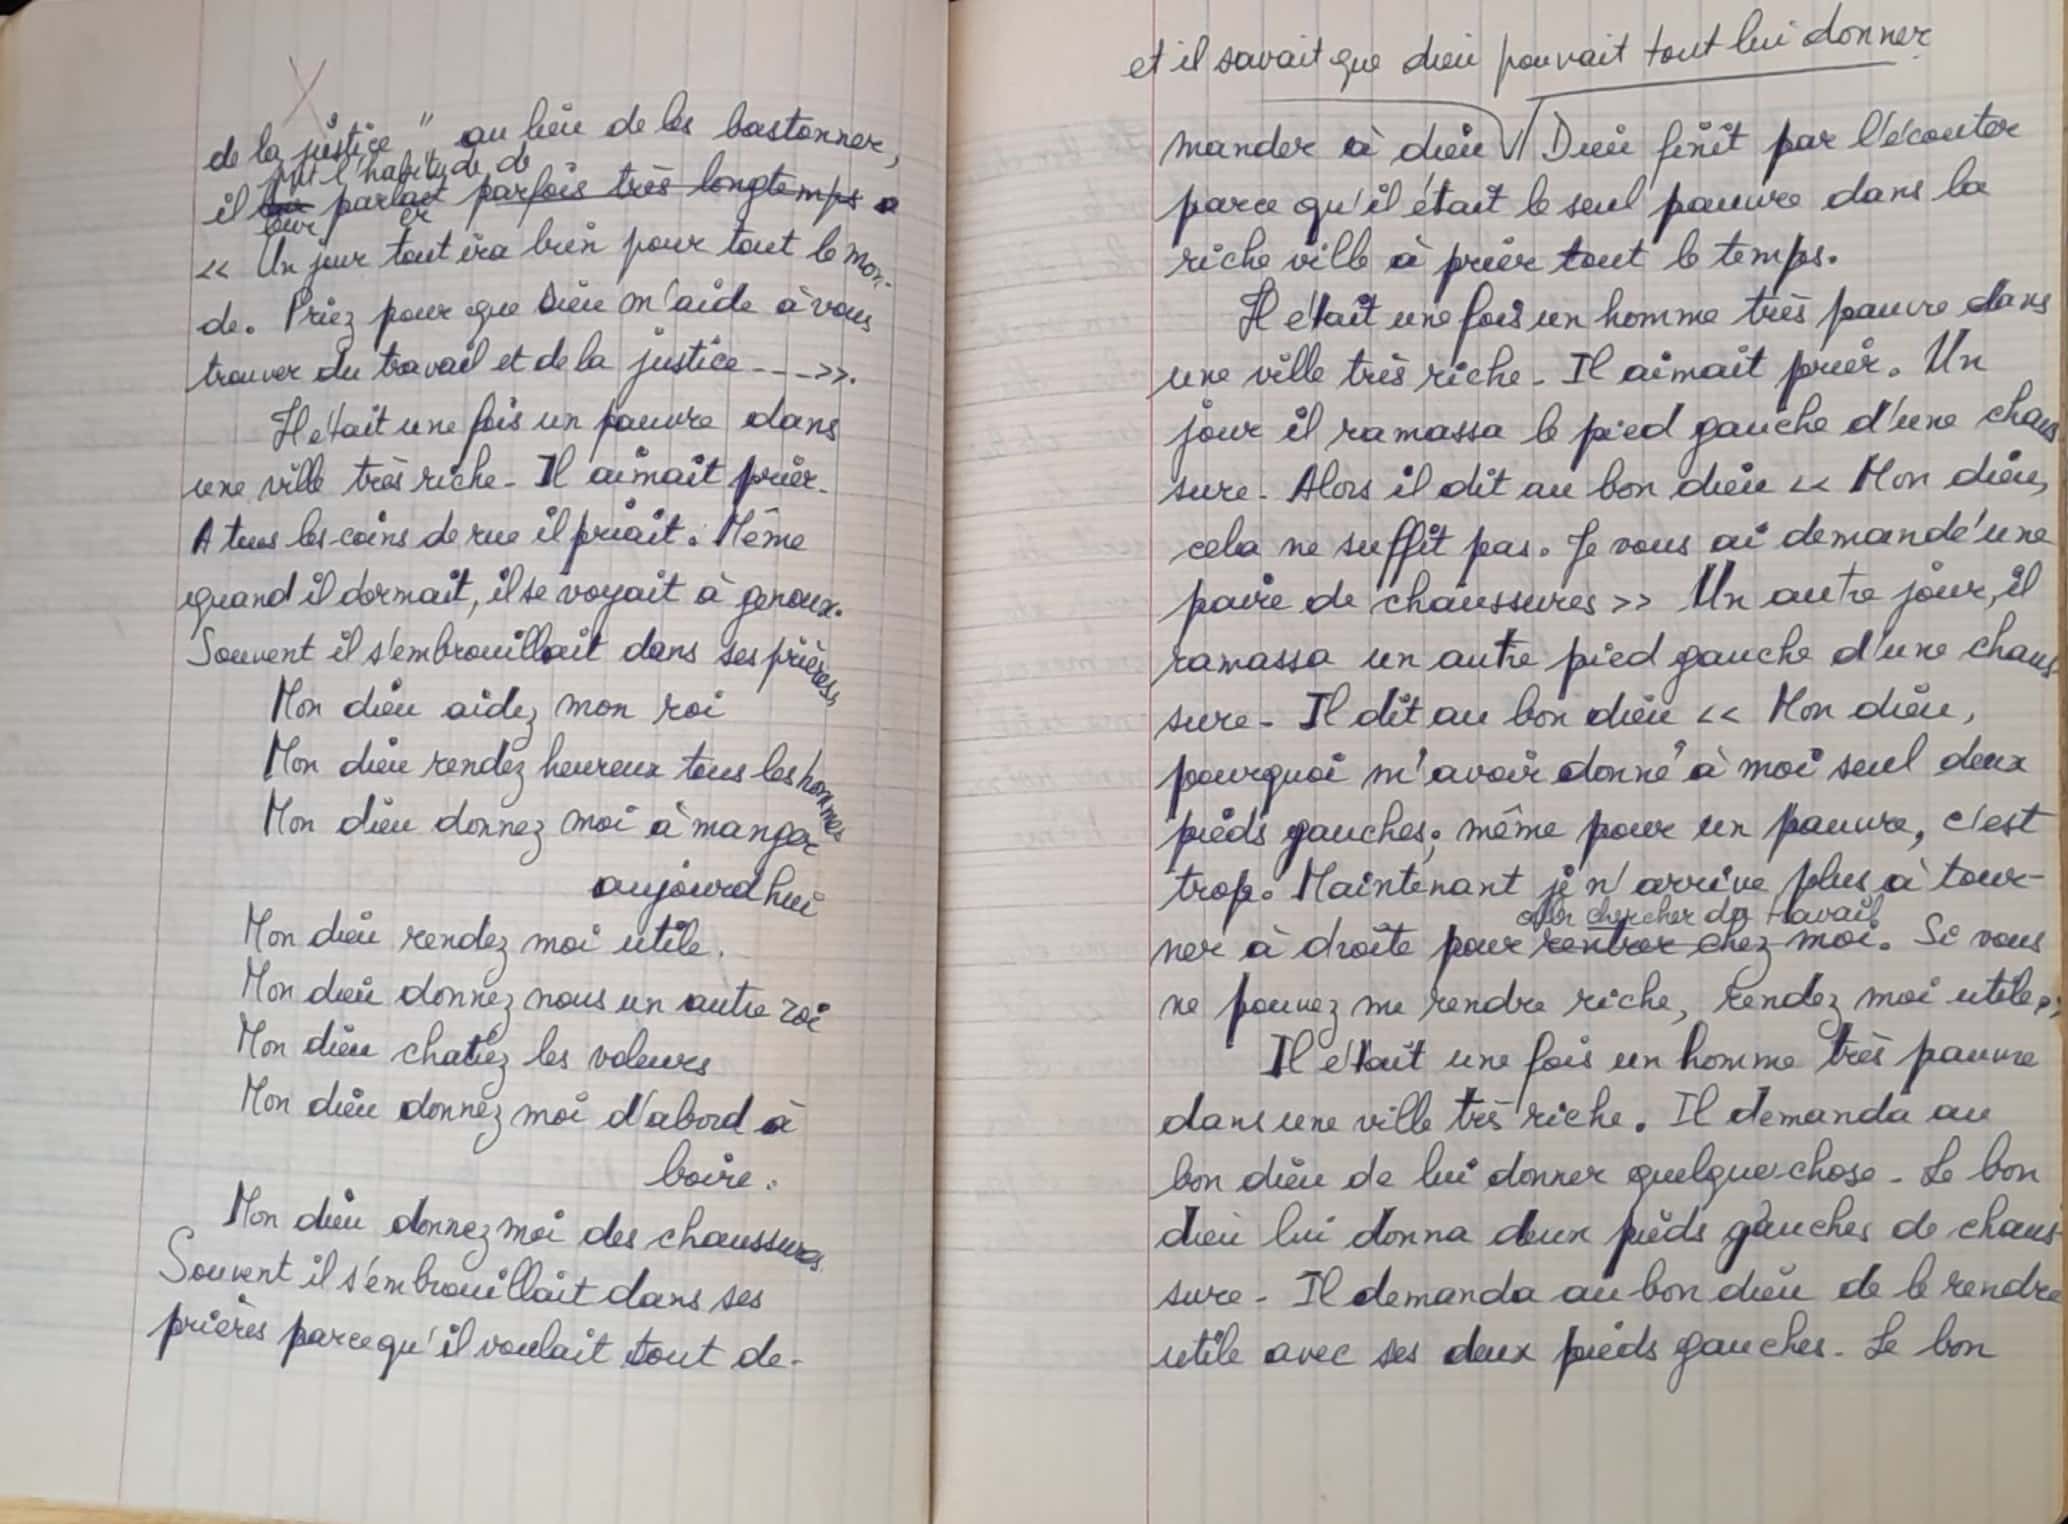 de la justice" au lieu de les bastonner,
prit l'habitude de
il leur parlait parfois très longtemps
leur er
« Un jour tout ira bien pour tout le mon-
de. Priez pour que Dieu m'aide à vous
trouver du travail et de la justice ---- ».
Il était une fois un pauvre dans
une ville très riche. Il aimait prier.
A tous les coins de rue il priait. Même
quand il dormait, il se voyait à genoux.
Souvent il s'embrouillait dans ses prières
Mon dieu aidez mon roi
Mon dieu rendez heureux tous les hommes
Mon dieu donnez moi à manger
aujourd'hui
Mon dieu rendez moi utile.
Mon dieu donnez nous un autre roi
Mon dieu chatiez les voleurs
Mon dieu donnez moi d'abord à
boire.
Mon dieu donnez moi des chaussures
Souvent il s'embrouillait dans ses
prières parce qu'il voulait tout de-
et il savait que dieu pouvait tout lui donner.
mander à dieu Dieu finit par l'écouter
parce qu'il était le seul pauvre dans la
riche ville à prier tout le temps.
Il était une fois un homme très pauvre dans
une ville très riche. Il aimait prier. Un
jour il ramassa le pied gauche d'une chaus
sure. Alors il dit au bon dieu « Mon dieu,
cela ne suffit pas. Je vous ai demandé une
paire de chaussures » Un autre jour, il
ramassa un autre pied gauche d'une chaus
sure. Il dit au bon dieu « Mon dieu,
pourquoi m'avoir donné à moi seul deux
pieds gauches; même pour un pauvre, c'est
trop. Maintenant je n'arrive plus à tour-
aller chercher du travail
ner à droite pour rentrer chez moi. Si vous
ne pouvez me rendre riche, rendez moi utile »;
Il était une fois un homme très pauvre
dans une ville très riche. Il demanda au
bon dieu de lui donner quelque chose. Le bon
dieu lui donna deux pieds gauches de chaus-
sure. Il demanda au bon dieu de le rendre
utile avec ses deux pieds gauches. Le bon